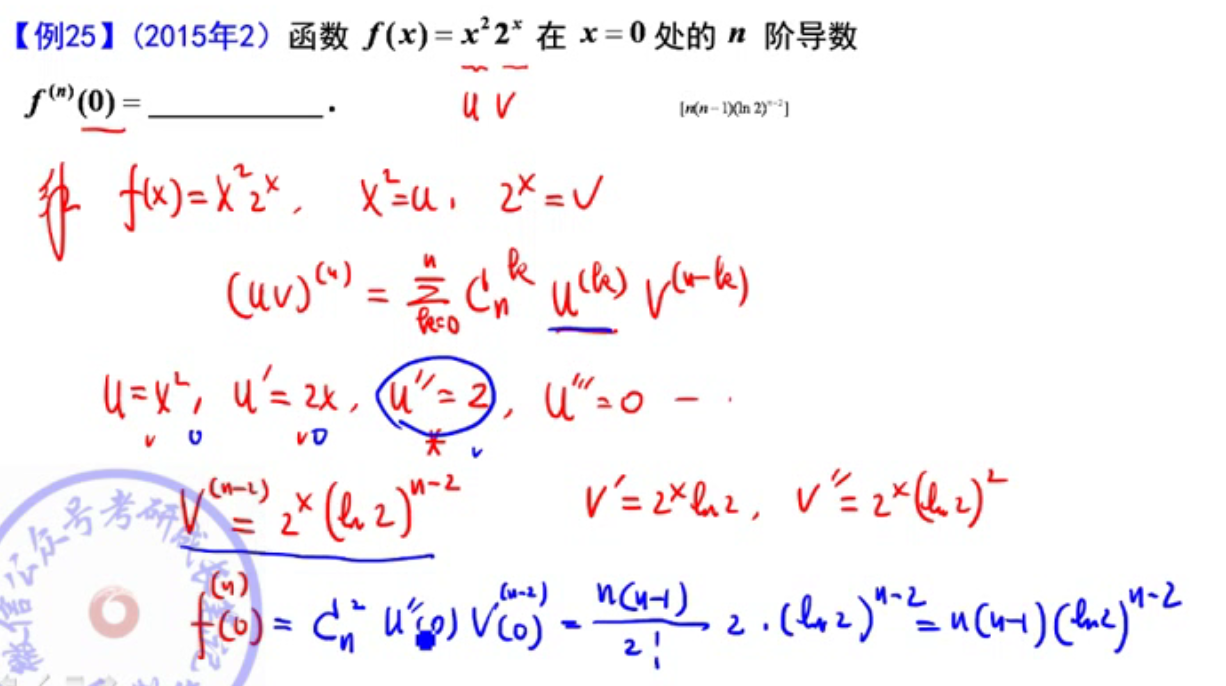 【例25】(2015年2) 函数 f(x) = x²2ˣ 在 x = 0 处的 n 阶导数
f⁽ⁿ⁾(0) = ____________ .
[n(n−1)(ln 2)ⁿ⁻²]
u v
f(x) = x²2ˣ, x² = u, 2ˣ = v
(uv)⁽ⁿ⁾ = Σₖ₌₀ⁿ Cₙᵏ u⁽ᵏ⁾ v⁽ⁿ⁻ᵏ⁾
u = x², u′ = 2x, u″ = 2, u‴ = 0 − ·
v 0 v 0 * v
v⁽ⁿ⁻²⁾ = 2ˣ(ln 2)ⁿ⁻² v′ = 2ˣ ln 2, v″ = 2ˣ(ln 2)²
f⁽ⁿ⁾(0) = Cₙ² u″(0) v⁽ⁿ⁻²⁾(0) = n(n−1)/2! 2 · (ln 2)ⁿ⁻² = n(n−1)(ln 2)ⁿ⁻²